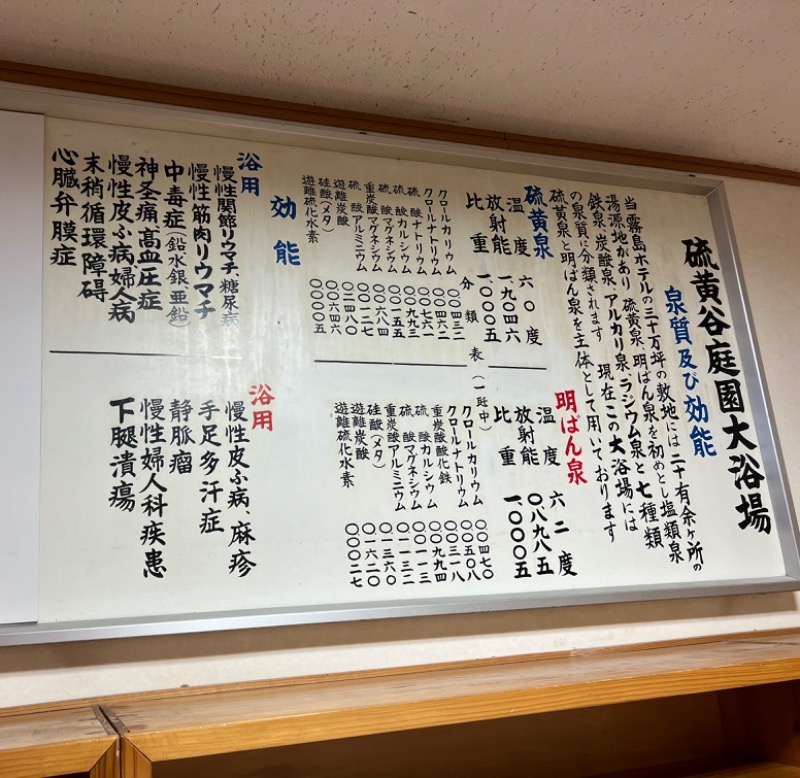 硫黄谷庭園大浴場
泉質及び効能
当霧島ホテルの三十万坪の敷地には二十有余ヶ所の
湯源地があり 硫黄泉、明ばん泉を初めとし塩類泉
鉄泉、炭酸泉、アルカリ泉、ラジウム泉と七種類
の泉質に分類されます 現在この大浴場には
硫黄泉と明ばん泉を主体として用いております
硫黄泉
温度 六〇度
放射能 一、九〇四六
比重 一、〇〇〇五
明ばん泉
温度 六二度
放射能 〇、八九八五
比重 一、〇〇〇五
分類表(一瓩中)
クロールカリウム 〇〇四三二
クロールナトリウム 〇〇四六二
硫酸ナトリウム 〇〇七六一
硫酸カルシウム 〇〇九九三
硫酸マグネシウム 〇〇一五五
重炭酸マグネシウム 〇〇六八四
硫酸アルミニウム 〇〇一二七
遊離炭酸 〇二四八〇
硅酸(メタ) 〇〇六四六
遊離硫化水素 〇〇〇〇五
クロールカリウム 〇〇四七〇
クロールナトリウム 〇〇五〇八
重炭酸酸化鉄 〇〇三一八
硫酸カルシウム 〇〇九九四
硫酸マグネシウム 〇〇一一三
重炭酸アルミニウム 〇〇一三二
硅酸(メタ) 〇一三六〇
遊離炭酸 〇一六二〇
遊離硫化水素 〇〇〇二七
効能
浴用
慢性関節リウマチ、糖尿病
慢性筋肉リウマチ
中毒症(鉛水銀、亜鉛)
神圣痛、高血圧症
慢性皮ふ病婦人病
末稍循環障碍
心臓弁膜症
浴用
慢性皮ふ病、麻疹
手足多汗症
静脈瘤
慢性婦人科疾患
下腿潰瘍